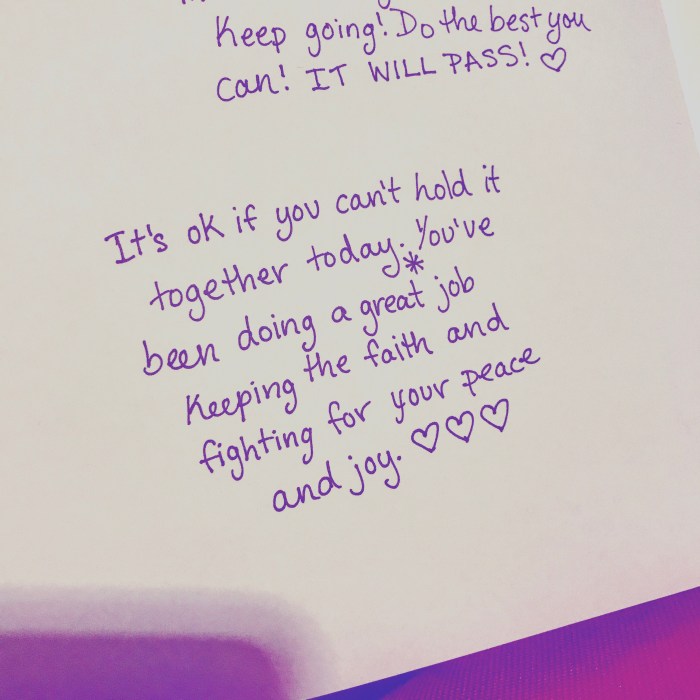 Keep going! Do the best you
can! IT WILL PASS! ♡
It's ok if you can't hold it
together today. You've
*
been doing a great job
Keeping the faith and
fighting for your peace
and joy. ♡♡♡